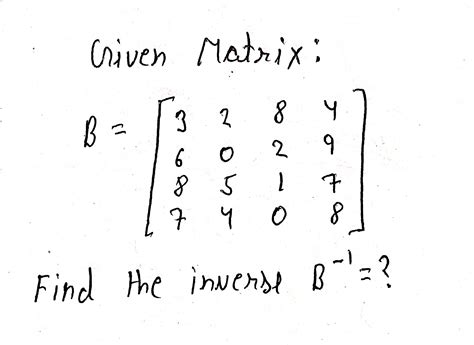 Given Matrix:
B = [3 2 8 4
6 0 2 9
8 5 1 7
7 4 0 8]
Find the inverse B⁻¹ = ?